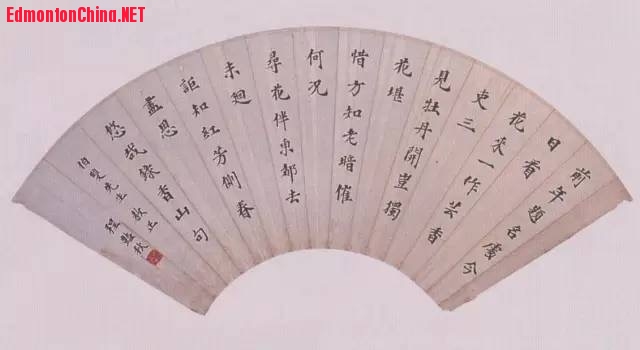 EdmontonChina.NET
前年題名處今
日看
花來一作芸香
吏三
見牡丹開豈獨
花堪
惜方知老暗催
何況
尋花伴東都去
未迴
詎知紅芳側春
盡思
悠哉錄香山句
伯先生教正
程豔秋
EdmontonChina.NET